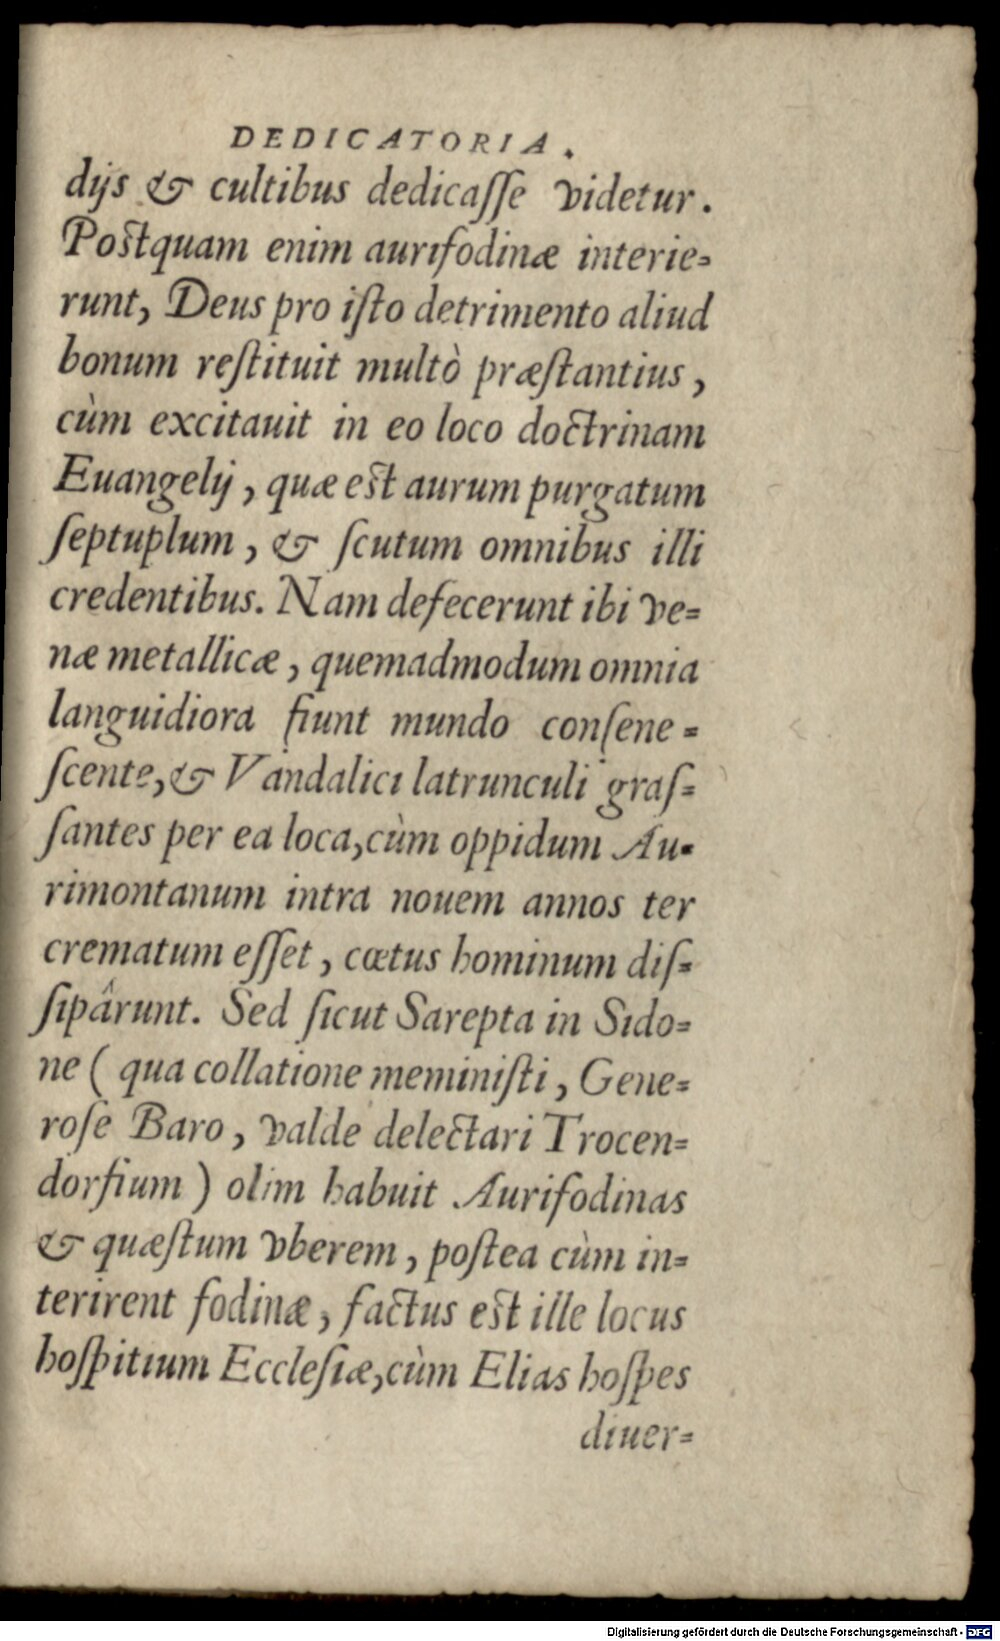 DEDICATORIA.
dijs & cultibus dedicaſſe videtur.
Postquam enim aurifodinæ interie=
runt, Deus pro iſto detrimento aliud
bonum reſtituit multò præſtantius,
cùm excitauit in eo loco doctrinam
Euangelij, quæ est aurum purgatum
ſeptuplum, & ſcutum omnibus illi
credentibus. Nam defecerunt ibi ve=
næ metallicæ, quemadmodum omnia
languidiora fiunt mundo conſene=
ſcente, & Vandalici latrunculi graſ=
ſantes per ea loca, cùm oppidum Au=
rimontanum intra nouem annos ter
crematum eſſet, cœtus hominum diſ=
ſipârunt. Sed ſicut Sarepta in Sido=
ne ( qua collatione meminiſti, Gene=
roſe Baro, valde delectari Trocen=
dorfium ) olim habuit Aurifodinas
& quæſtum vberem, poſtea cùm in=
terirent fodinæ, factus est ille locus
hoſpitium Eccleſiæ, cùm Elias hoſpes
diuer=
Digitalisierung gefördert durch die Deutsche Forschungsgemeinschaft - DFG